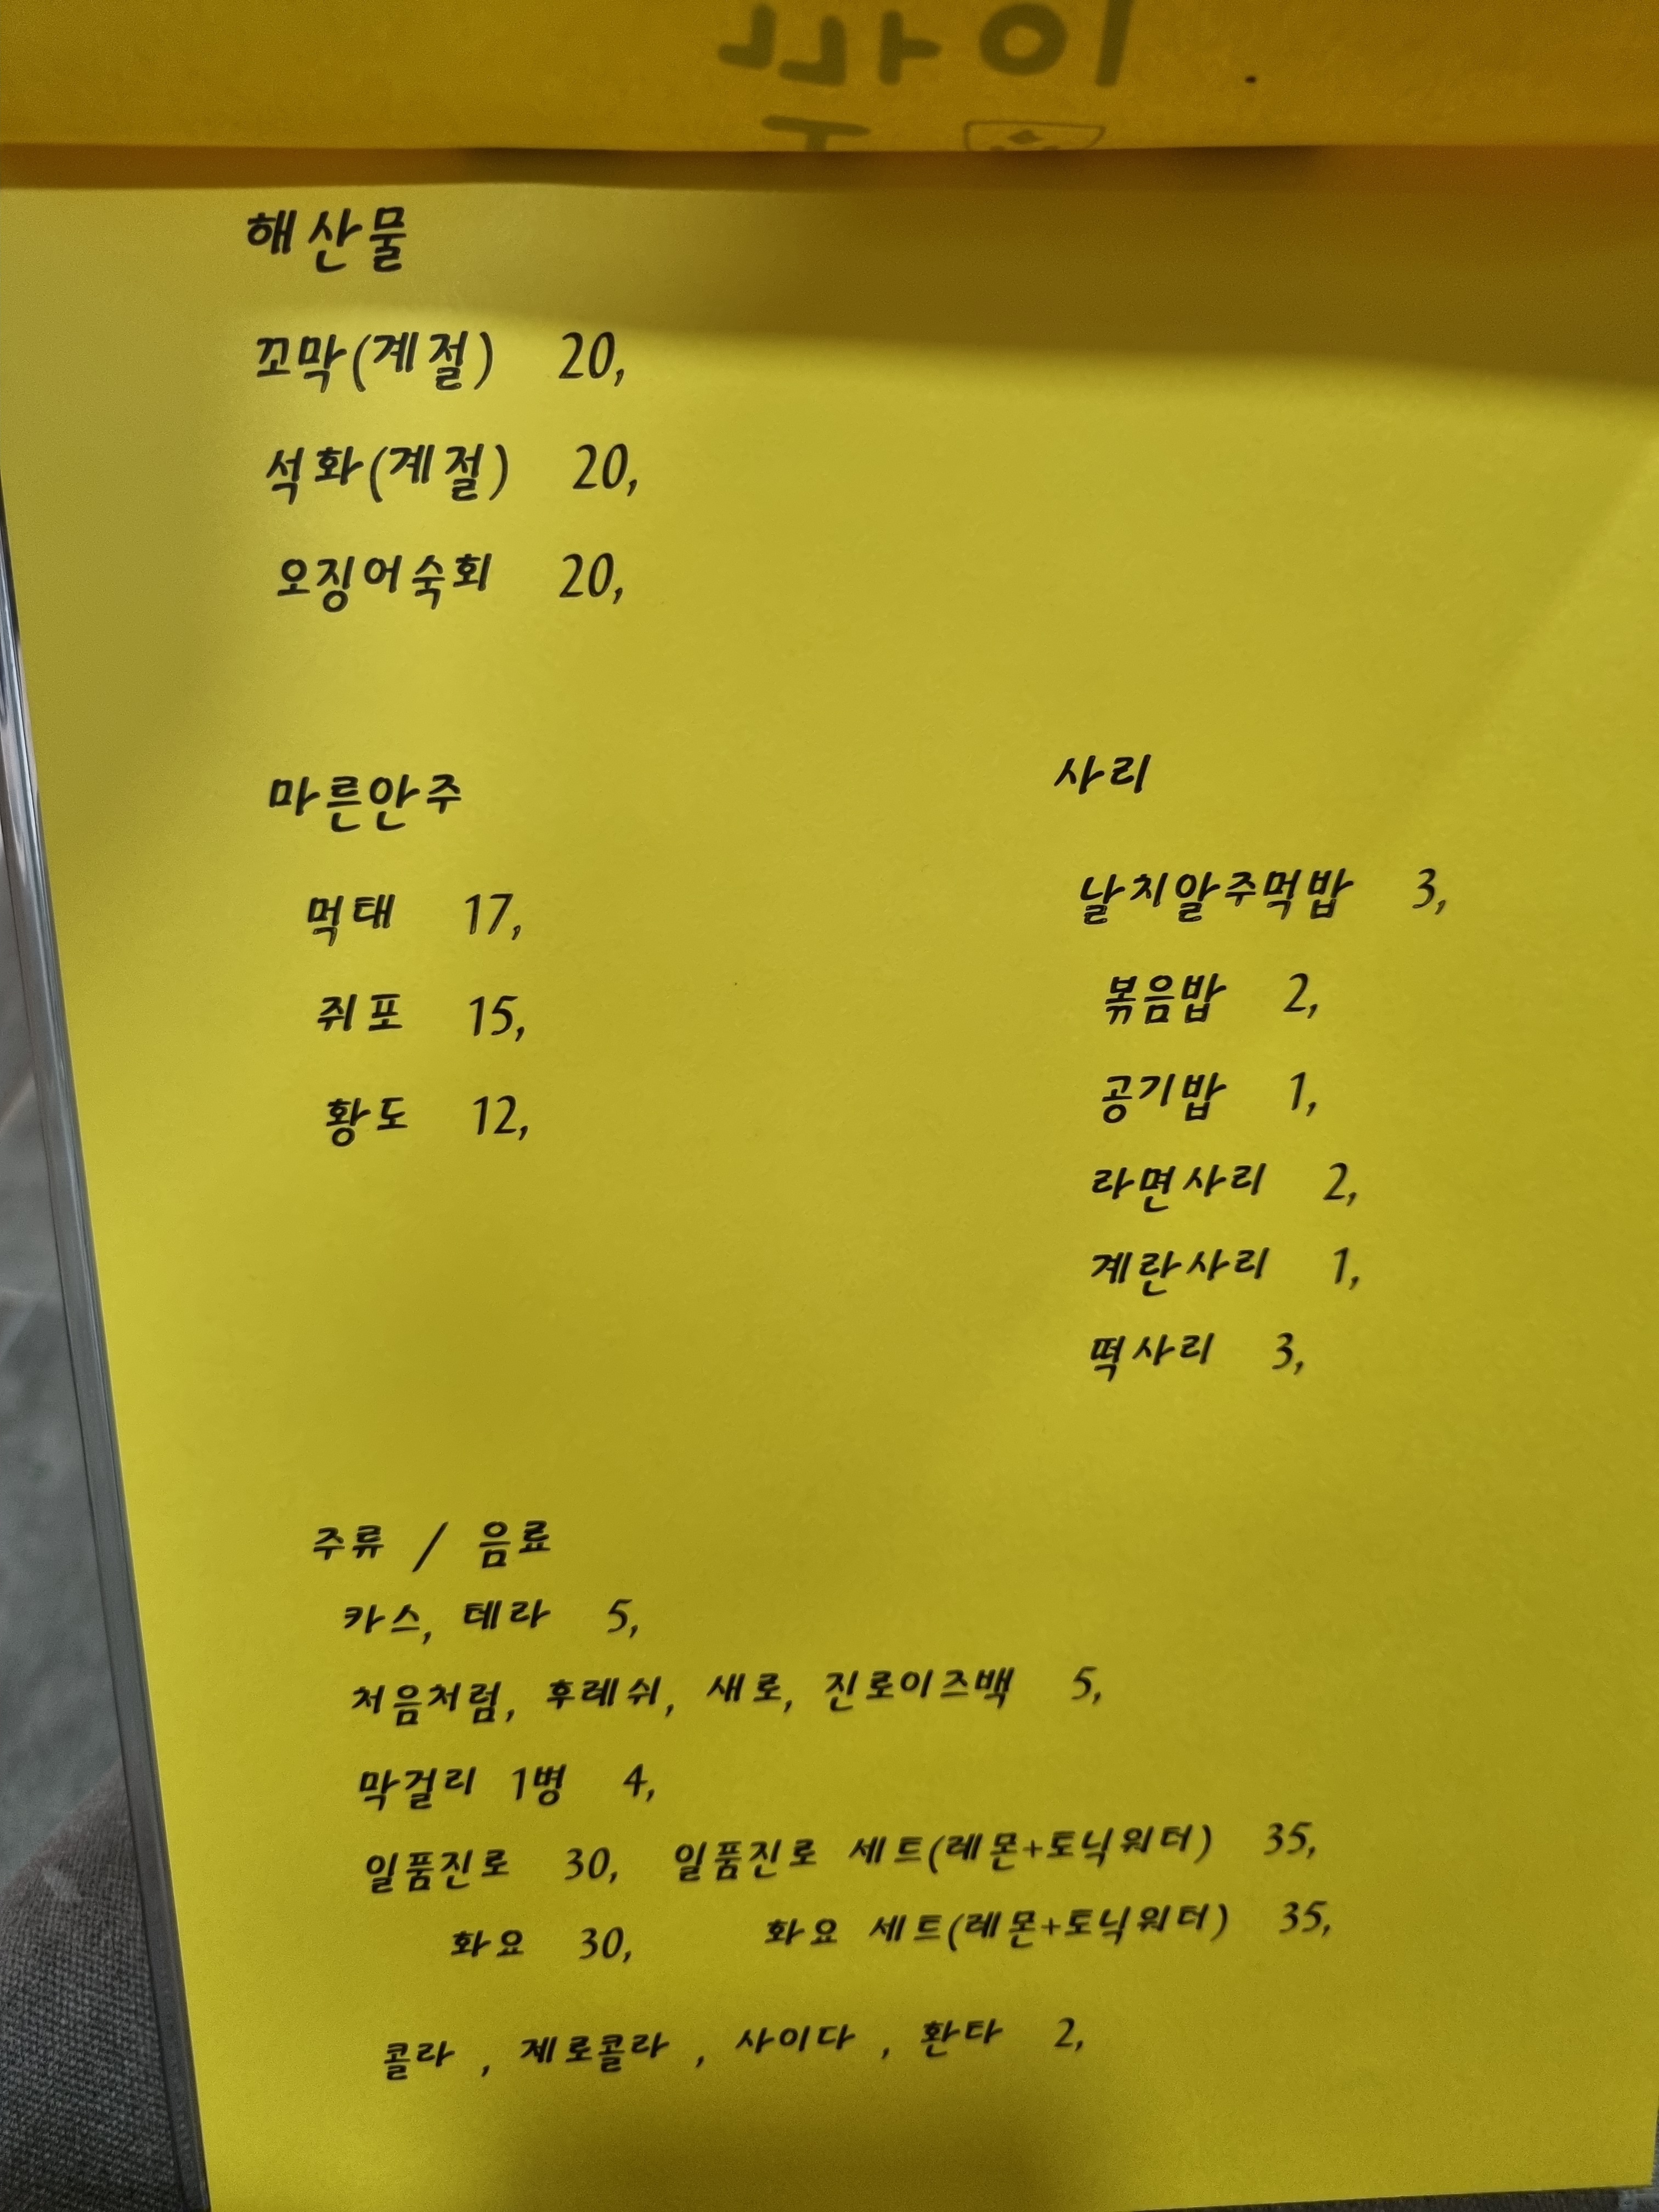 해산물
꼬막(계절) 20,
석화(계절) 20,
오징어숙회 20,
마른안주
먹태 17,
쥐포 15,
황도 12,
사리
날치알주먹밥 3,
볶음밥 2,
공기밥 1,
라면사리 2,
계란사리 1,
떡사리 3,
주류 / 음료
카스, 테라 5,
처음처럼, 후레쉬, 새로, 진로이즈백 5,
막걸리 1병 4,
일품진로 30, 일품진로 세트(레몬+토닉워터) 35,
화요 30, 화요 세트(레몬+토닉워터) 35,
콜라 , 제로콜라 , 사이다 , 환타 2,